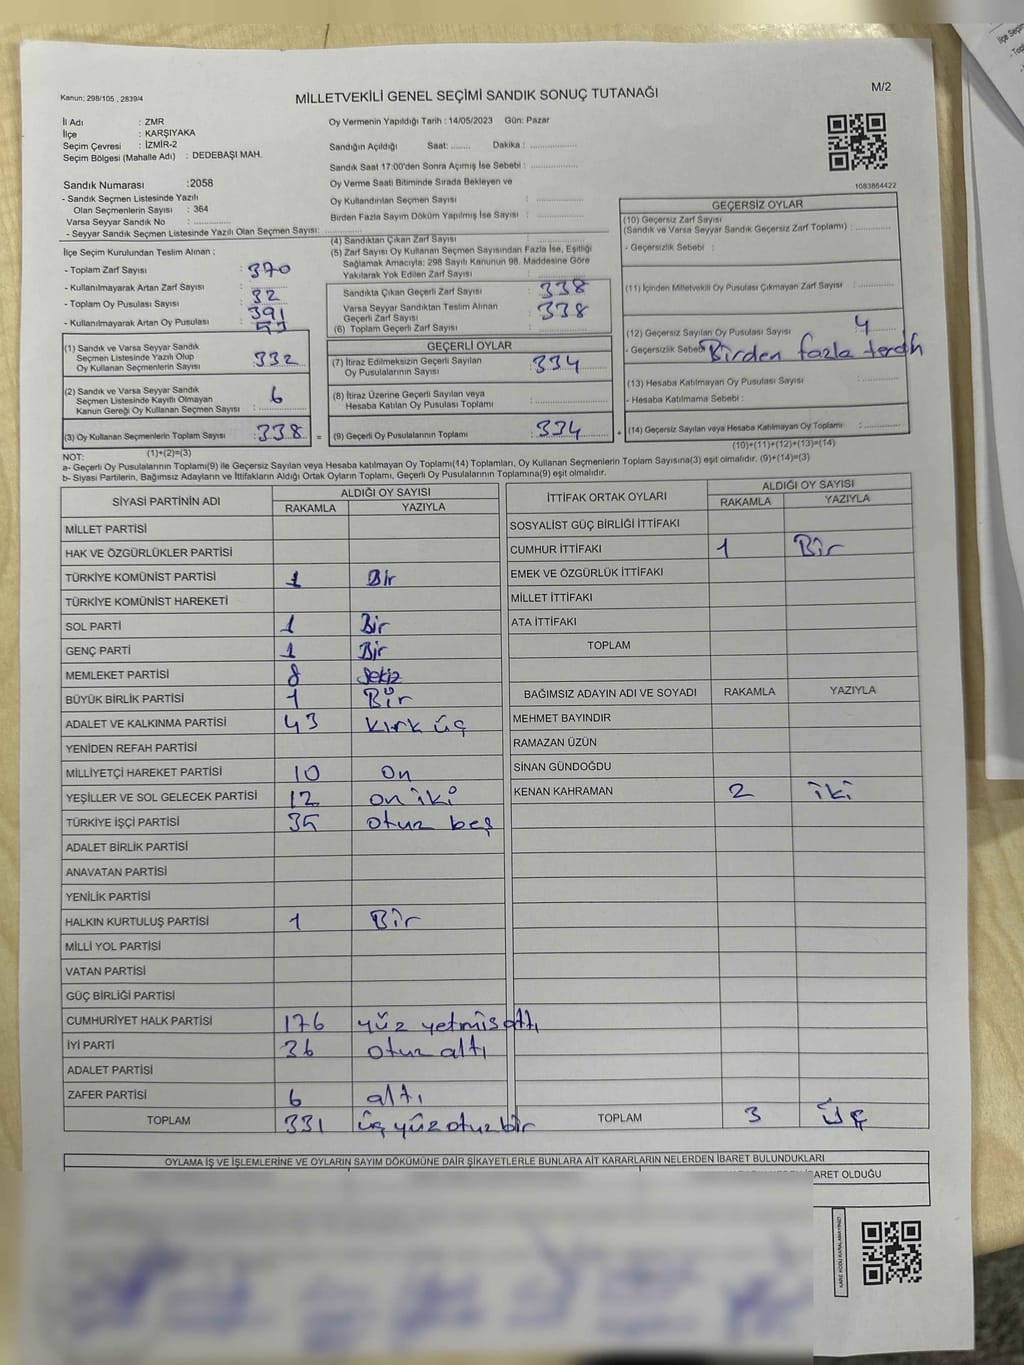 M/2
Kanun: 298/105 , 2839/4
MİLLETVEKİLİ GENEL SEÇİMİ SANDIK SONUÇ TUTANAĞI
İl Adı : ZMR
İlçe : KARŞIYAKA
Seçim Çevresi : İZMİR-2
Seçim Bölgesi (Mahalle Adı) : DEDEBAŞI MAH.
Sandık Numarası :2058
- Sandık Seçmen Listesinde Yazılı
Olan Seçmenlerin Sayısı : 364
Varsa Seyyar Sandık No :
- Seyyar Sandık Seçmen Listesinde Yazılı Olan Seçmen Sayısı:
Oy Vermenin Yapıldığı Tarih : 14/05/2023 Gün: Pazar
Sandığın Açıldığı Saat: ....... Dakika : ................
Sandık Saat 17:00'den Sonra Açımış İse Sebebi : ................
Oy Verme Saati Bitiminde Sırada Bekleyen ve
Oy Kullandırılan Seçmen Sayısı : ................
Birden Fazla Sayım Döküm Yapılmış İse Sayısı : ................
1083864422
İlçe Seçim Kurulundan Teslim Alınan ;
- Toplam Zarf Sayısı : 370
- Kullanılmayarak Artan Zarf Sayısı : 32
- Toplam Oy Pusulası Sayısı : 391
- Kullanılmayarak Artan Oy Pusulası : 53
(1) Sandık ve Varsa Seyyar Sandık
Seçmen Listesinde Yazılı Olup
Oy Kullanan Seçmenlerin Sayısı : 332
(2) Sandık ve Varsa Seyyar Sandık
Seçmen Listesinde Kayıtlı Olmayan
Kanun Gereği Oy Kullanan Seçmen Sayısı : 6
(3) Oy Kullanan Seçmenlerin Toplam Sayısı : 338 =
(4) Sandıktan Çıkan Zarf Sayısı
(5) Zarf Sayısı Oy Kullanan Seçmen Sayısından Fazla İse, Eşitliği
Sağlamak Amacıyla; 298 Sayılı Kanunun 98. Maddesine Göre
Yakılarak Yok Edilen Zarf Sayısı
Sandıkta Çıkan Geçerli Zarf Sayısı : 338
Varsa Seyyar Sandıktan Teslim Alınan
Geçerli Zarf Sayısı : 338
(6) Toplam Geçerli Zarf Sayısı :
GEÇERLİ OYLAR
(7) İtiraz Edilmeksizin Geçerli Sayılan
Oy Pusulalarının Sayısı : 334
(8) İtiraz Üzerine Geçerli Sayılan veya
Hesaba Katılan Oy Pusulası Toplamı :
(9) Geçerli Oy Pusulalarının Toplamı : 334 +
GEÇERSİZ OYLAR
(10) Geçersiz Zarf Sayısı
(Sandık ve Varsa Seyyar Sandık Geçersiz Zarf Toplamı) :
- Geçersizlik Sebebi :
(11) İçinden Milletvekili Oy Pusulası Çıkmayan Zarf Sayısı :
(12) Geçersiz Sayılan Oy Pusulası Sayısı : 4
- Geçersizlik Sebebi : Birden fazla
(13) Hesaba Katılmayan Oy Pusulası Sayısı :
- Hesaba Katılmama Sebebi :
(14) Geçersiz Sayılan veya Hesaba Katılmayan Oy Toplamı :
(1)+(2)=(3)
(10)+(11)+(12)+(13)=(14)
NOT:
a- Geçerli Oy Pusulalarının Toplamı(9) ile Geçersiz Sayılan veya Hesaba katılmayan Oy Toplamı(14) Toplamları, Oy Kullanan Seçmenlerin Toplam Sayısına(3) eşit olmalıdır. (9)+(14)=(3)
b- Siyasi Partilerin, Bağımsız Adayların ve İttifakların Aldığı Ortak Oyların Toplamı, Geçerli Oy Pusulalarının Toplamına(9) eşit olmalıdır.
SİYASİ PARTİNİN ADI ALDIĞI OY SAYISI
RAKAMLA YAZIYLA
MİLLET PARTİSİ
HAK VE ÖZGÜRLÜKLER PARTİSİ
TÜRKİYE KOMÜNİST PARTİSİ 1 Bir
TÜRKİYE KOMÜNİST HAREKETİ
SOL PARTİ 1 Bir
GENÇ PARTİ 1 Bir
MEMLEKET PARTİSİ 8 Sekiz
BÜYÜK BİRLİK PARTİSİ 1 Bir
ADALET VE KALKINMA PARTİSİ 43 Kırk üç
YENİDEN REFAH PARTİSİ
MİLLİYETÇİ HAREKET PARTİSİ 10 On
YEŞİLLER VE SOL GELECEK PARTİSİ 12 on iki
TÜRKİYE İŞÇİ PARTİSİ 35 otuz beş
ADALET BİRLİK PARTİSİ
ANAVATAN PARTİSİ
YENİLİK PARTİSİ
HALKIN KURTULUŞ PARTİSİ 1 Bir
MİLLİ YOL PARTİSİ
VATAN PARTİSİ
GÜÇ BİRLİĞİ PARTİSİ
CUMHURİYET HALK PARTİSİ 176 yüz yetmiş altı
İYİ PARTİ 36 otuz altı
ADALET PARTİSİ
ZAFER PARTİSİ 6 altı
TOPLAM 331 üç yüz otuz bir
İTTİFAK ORTAK OYLARI ALDIĞI OY SAYISI
RAKAMLA YAZIYLA
SOSYALİST GÜÇ BİRLİĞİ İTTİFAKI
CUMHUR İTTİFAKI 1 Bir
EMEK VE ÖZGÜRLÜK İTTİFAKI
MİLLET İTTİFAKI
ATA İTTİFAKI
TOPLAM
BAĞIMSIZ ADAYIN ADI VE SOYADI RAKAMLA YAZIYLA
MEHMET BAYINDIR
RAMAZAN ÜZÜN
SİNAN GÜNDOĞDU
KENAN KAHRAMAN 2 iki
TOPLAM 3 Üç
OYLAMA İŞ VE İŞLEMLERİNE VE OYLARIN SAYIM DÖKÜMÜNE DAİR ŞİKAYETLERLE BUNLARA AİT KARARLARIN NELERDEN İBARET BULUNDUKLARI
BARET OLDUĞU